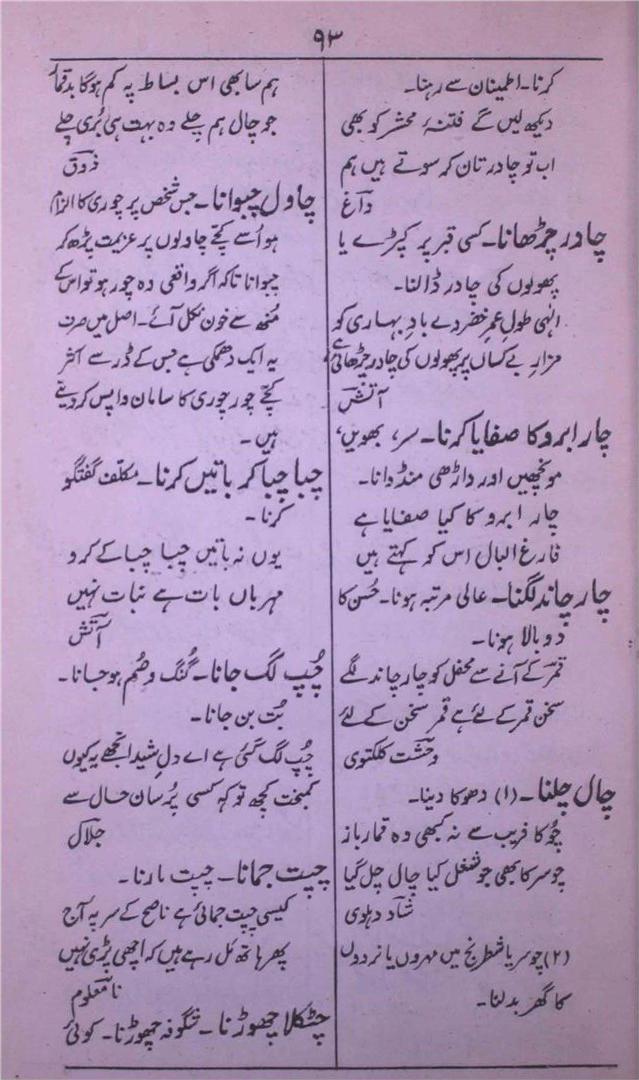 ۹۳
کرنا۔ اطمینان سے رہنا۔
دیکھ لیں گے فتنۂ محشر کو بھی
اب تو چادر تان کر سوتے ہیں ہم
داغؔ
چادر چڑھانا۔ کسی قبر پر کپڑے یا
پھولوں کی چادر ڈالنا۔
الٰہی طولِ عمرِ خضر دے بادِ بہاری کو
مزارِ بے کساں پر پھولوں کی چادر چڑھاتی ہے
آتشؔ
چار ابرو کا صفایا کرنا۔ سر، بھویں،
مونچھیں اور داڑھی منڈوانا۔
چار ابرو کا کیا صفایا ہے
فارغ البال اس کو کہتے ہیں
چار چاند لگنا۔ عالی مرتبہ ہونا۔ حُسن کا
دوبالا ہونا۔
قمرؔ کے آنے سے محفل کو چار چاند لگے
سخن قمر کے لئے ہے قمر سخن کے لئے
وحشتؔ کلکتوی
چال چلنا۔ (۱) دھوکا دینا۔
چُوکا فریب سے نہ کبھی وہ قمار باز
چوسر کا بھی جو شغل کیا چال چل گیا
شادؔ دہلوی
(۲) چوسر یا شطرنج میں مہروں یا نردوں
کا گھر بدلنا۔
ہم سا بھی اس بساط پہ کم ہوگا بدقمار
جو چال ہم چلے وہ بہت ہی بُری چلے
ذوقؔ
چاول چبوانا۔ جس شخص پر چوری کا الزام
ہو اُسے کچّے چاولوں پر عزیمت پڑھ کر
چبوانا تاکہ اگر واقعی وہ چور ہو تو اس کے
مُنھ سے خون نکل آئے۔ اصل میں صرف
یہ ایک دھمکی ہے جس کے ڈر سے اکثر
کچّے چور چوری کا سامان واپس کر دیتے
ہیں۔
چبا چبا کر باتیں کرنا۔ مکلّف گفتگو
کرنا۔
یوں نہ باتیں چبا چبا کے کرو
مہرباں بات ہے نبات نہیں
آتشؔ
چُپ لگ جانا۔ گُنگ و صُم ہو جانا۔
بُت بن جانا۔
چُپ لگ گئی ہے اے دلِ شیدا تجھے یہ کیوں
کمبخت کچھ تو کہہ کسی پُرسانِ حال سے
جلالؔ
چپت جمانا۔ چپت مارنا۔
کیسی چپت جمائی ہے ناصح کے سر پہ آج
پھر ہاتھ مَل رہے ہیں کہ اچھی پڑی نہیں
نامعلوم
چٹکلا چھوڑنا۔ شگوفہ چھوڑنا۔ کوئی